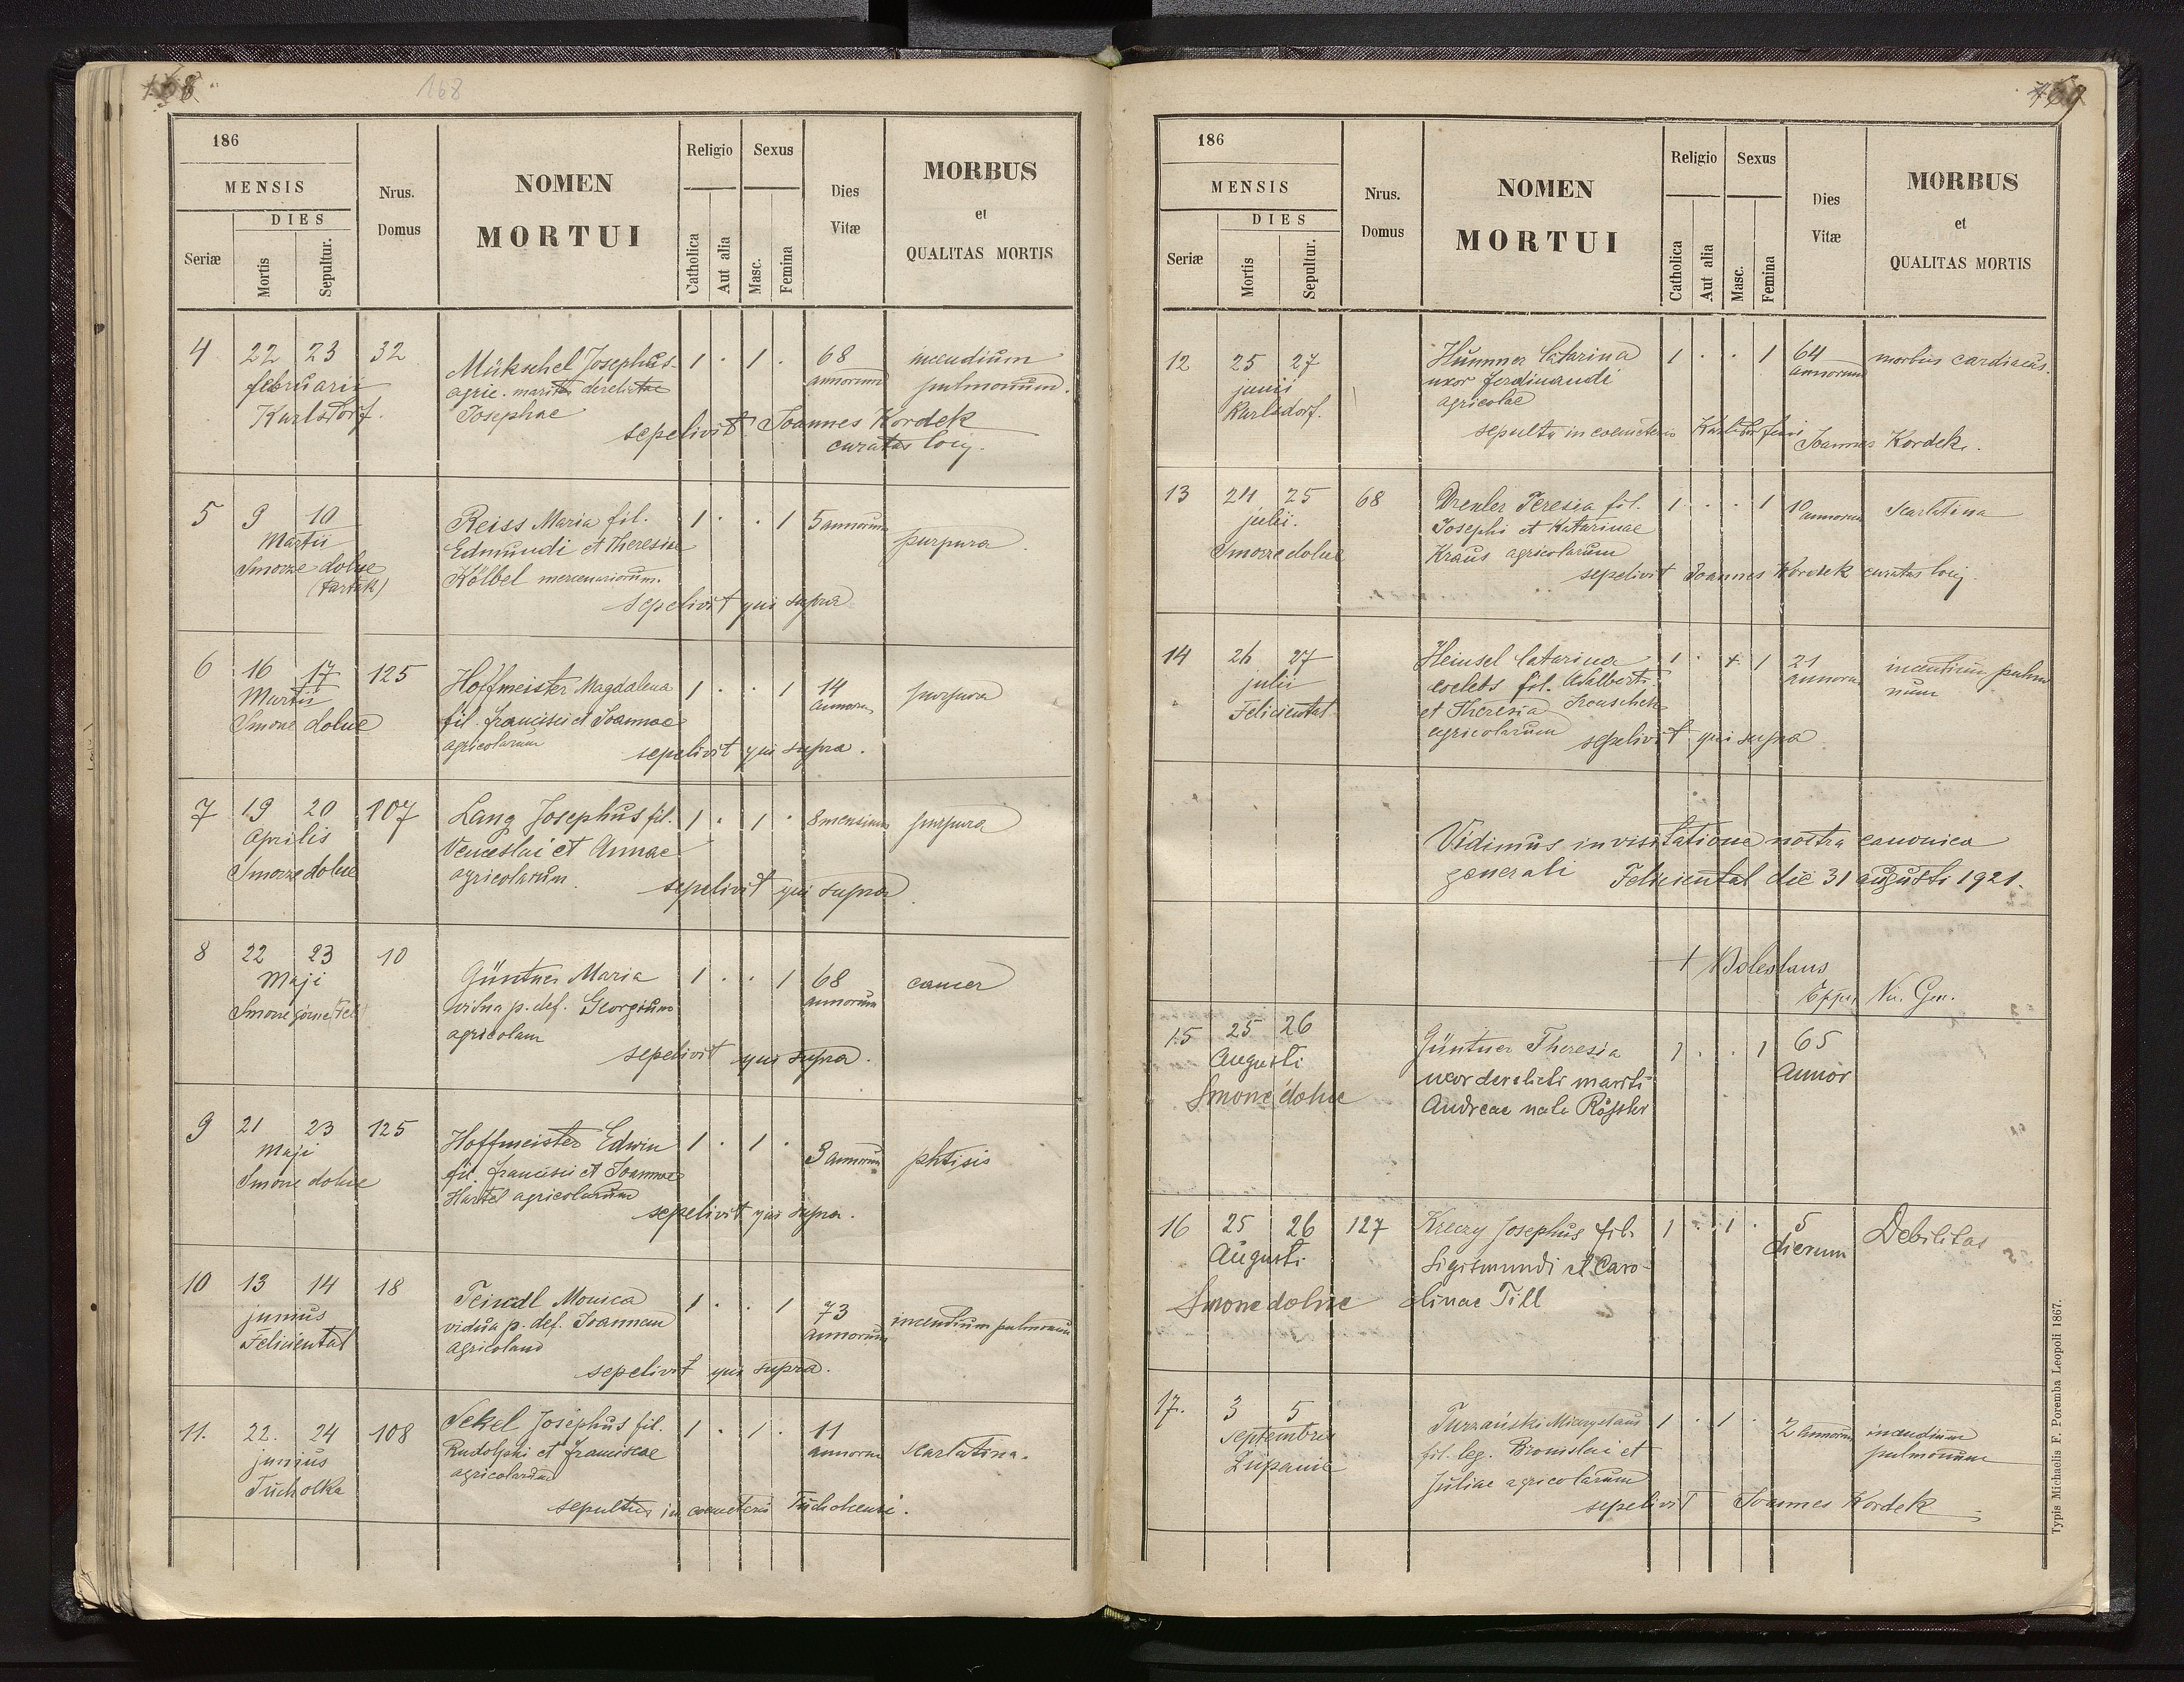 168
186
MENSIS
DIES
Seriæ
Mortis
Sepultur.
Nrus.
Domus
NOMEN
MORTUI
Religio
Sexus
Catholica
Aut alia
Masc.
Femina
Dies
Vitæ
MORBUS
et
QUALITAS MORTIS
4 22 23 32 Mükschel Josephus 1 . 1 . 68 incendium
februarii agric. maritus derelictae annorum pulmonum.
Karlsdorf. Josephae
sepelivit Joannes Kordek
curatus loci.
5 9 10 Reiss Maria fil. 1 . . 1 5 annorum
Martii Edmundi et Theresiae purpura
Smorze dolne Kölbel mercenariorum.
(tartak)
sepelivit qui supra
6 16 17 125 Hoffmeister Magdalena 1 . . 1 14 purpura
Martii fil. francisci et Joannae annorum
Smorze dolne agricolarum
sepelivit qui supra.
7 19 20 107 Lang Josephus fil. 1 . 1 . 8 mensium purpura
Aprilis Venceslai et Annae
Smorze dolne agricolarum
sepelivit qui supra
8 22 23 10 Güntner Maria 1 . . 1 68 cancer
Maji vidua p. def. Georgium annorum
Smorze górne (Fel) agricolam
sepelivit qui supra.
9 21 23 125 Hoffmeister Edwin 1 . 1 . 3 annorum phtisis
Maji fil. francisci et Joannae
Smorze dolne Hartel agricolarum
sepelivit qui supra.
10 13 14 18 Teindl Monica 1 . . 1 73 incendium pulmonum
junius vidua p. def. Joannem annorum
Felicientat agricolam
sepelivit qui supra.
11. 22. 24 108 Sekel Josephus fil. 1 . 1 . 11
junius Rudolphi et franciscae annorum scarlatina.
Tucholka agricolarum
sepultus in coemeterio Tucholcensi.
169
186
MENSIS
DIES
Seriæ
Mortis
Sepultur.
Nrus.
Domus
NOMEN
MORTUI
Religio
Sexus
Catholica
Aut alia
Masc.
Femina
Dies
Vitæ
MORBUS
et
QUALITAS MORTIS
12 25 27 Hummer Catarina 1 . . 1 64 morbus cardiacus.
junii uxor ferdinandi annorum
Karlsdorf. agricolae
sepulta in coemeterio Joannes Kordek.
13 24 25 68 Drexler Teresia fil. 1 . . . 1 10 annorum Scarlatina
julii. Josephi et Katarinae
Smorze dolne Kraus agricolarum
sepelivit Joannes Kordek curatus loci.
14 26 27 Heinsel Catarina 1 . + 1 21 incendium pulmo
julii coelebs fil. Adalberti annorum num
Felicientat et Theresia
agricolarum
sepelivit qui supra
Vidimus in visitatione nostra canonica
generali Felicientat die 31 augusti 1921.
+ Boleslaus
Eppus Vic. Gen.
15 25 26 Güntner Theresia 1 . . 1 65
Augusti uxor derelicti mariti Annor
Smorze dolne Andreae nata Rössler
16 25 26 127 Kreczy Josephus fil. 1 . 1 . 5 Debilitas
Augusti Sigismundi et Caro- dierum
Smorze dolne linae Till
17. 3 5 Turzański Mieczyslaus 1 . 1 . 2 annorum incendium
Septembris fil. leg. Bronislai et pulmonum
Zupanie Juliae agricolarum
sepelivit Joannes Kordek
Typis Michaelis F. Poremba Leopoli 1867.